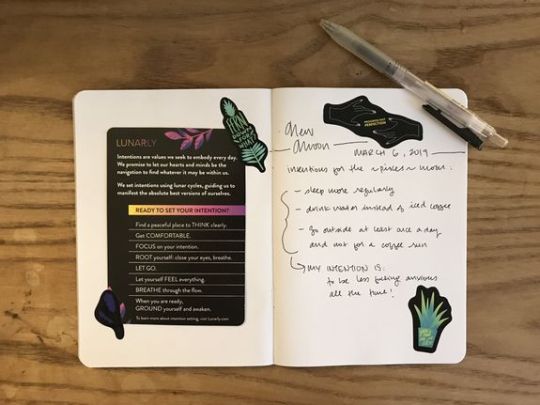 LUNARLY
Intentions are values we seek to embody every day.
We promise to let our hearts and minds be the
navigation to finding whatever it may be within us.
We set intentions using lunar cycles, guiding us to
manifest the absolute best versions of ourselves.
READY TO SET YOUR INTENTION?
Find a peaceful place to THINK clearly.
Get COMFORTABLE.
FOCUS on your intention.
ROOT yourself: close your eyes, breathe.
LET GO.
Let yourself FEEL everything.
BREATHE through the flow.
When you are ready,
GROUND yourself and awaken.
To learn more about intention setting, visit Lunarly.com
New
Moon
MARCH 6, 2019
intentions for the ~pisces~ moon:
- sleep more regularly
- drink water instead of iced coffee
- go outside at least once a day
and not for a coffee run
MY INTENTION IS:
to be less fucking anxious
all the time!